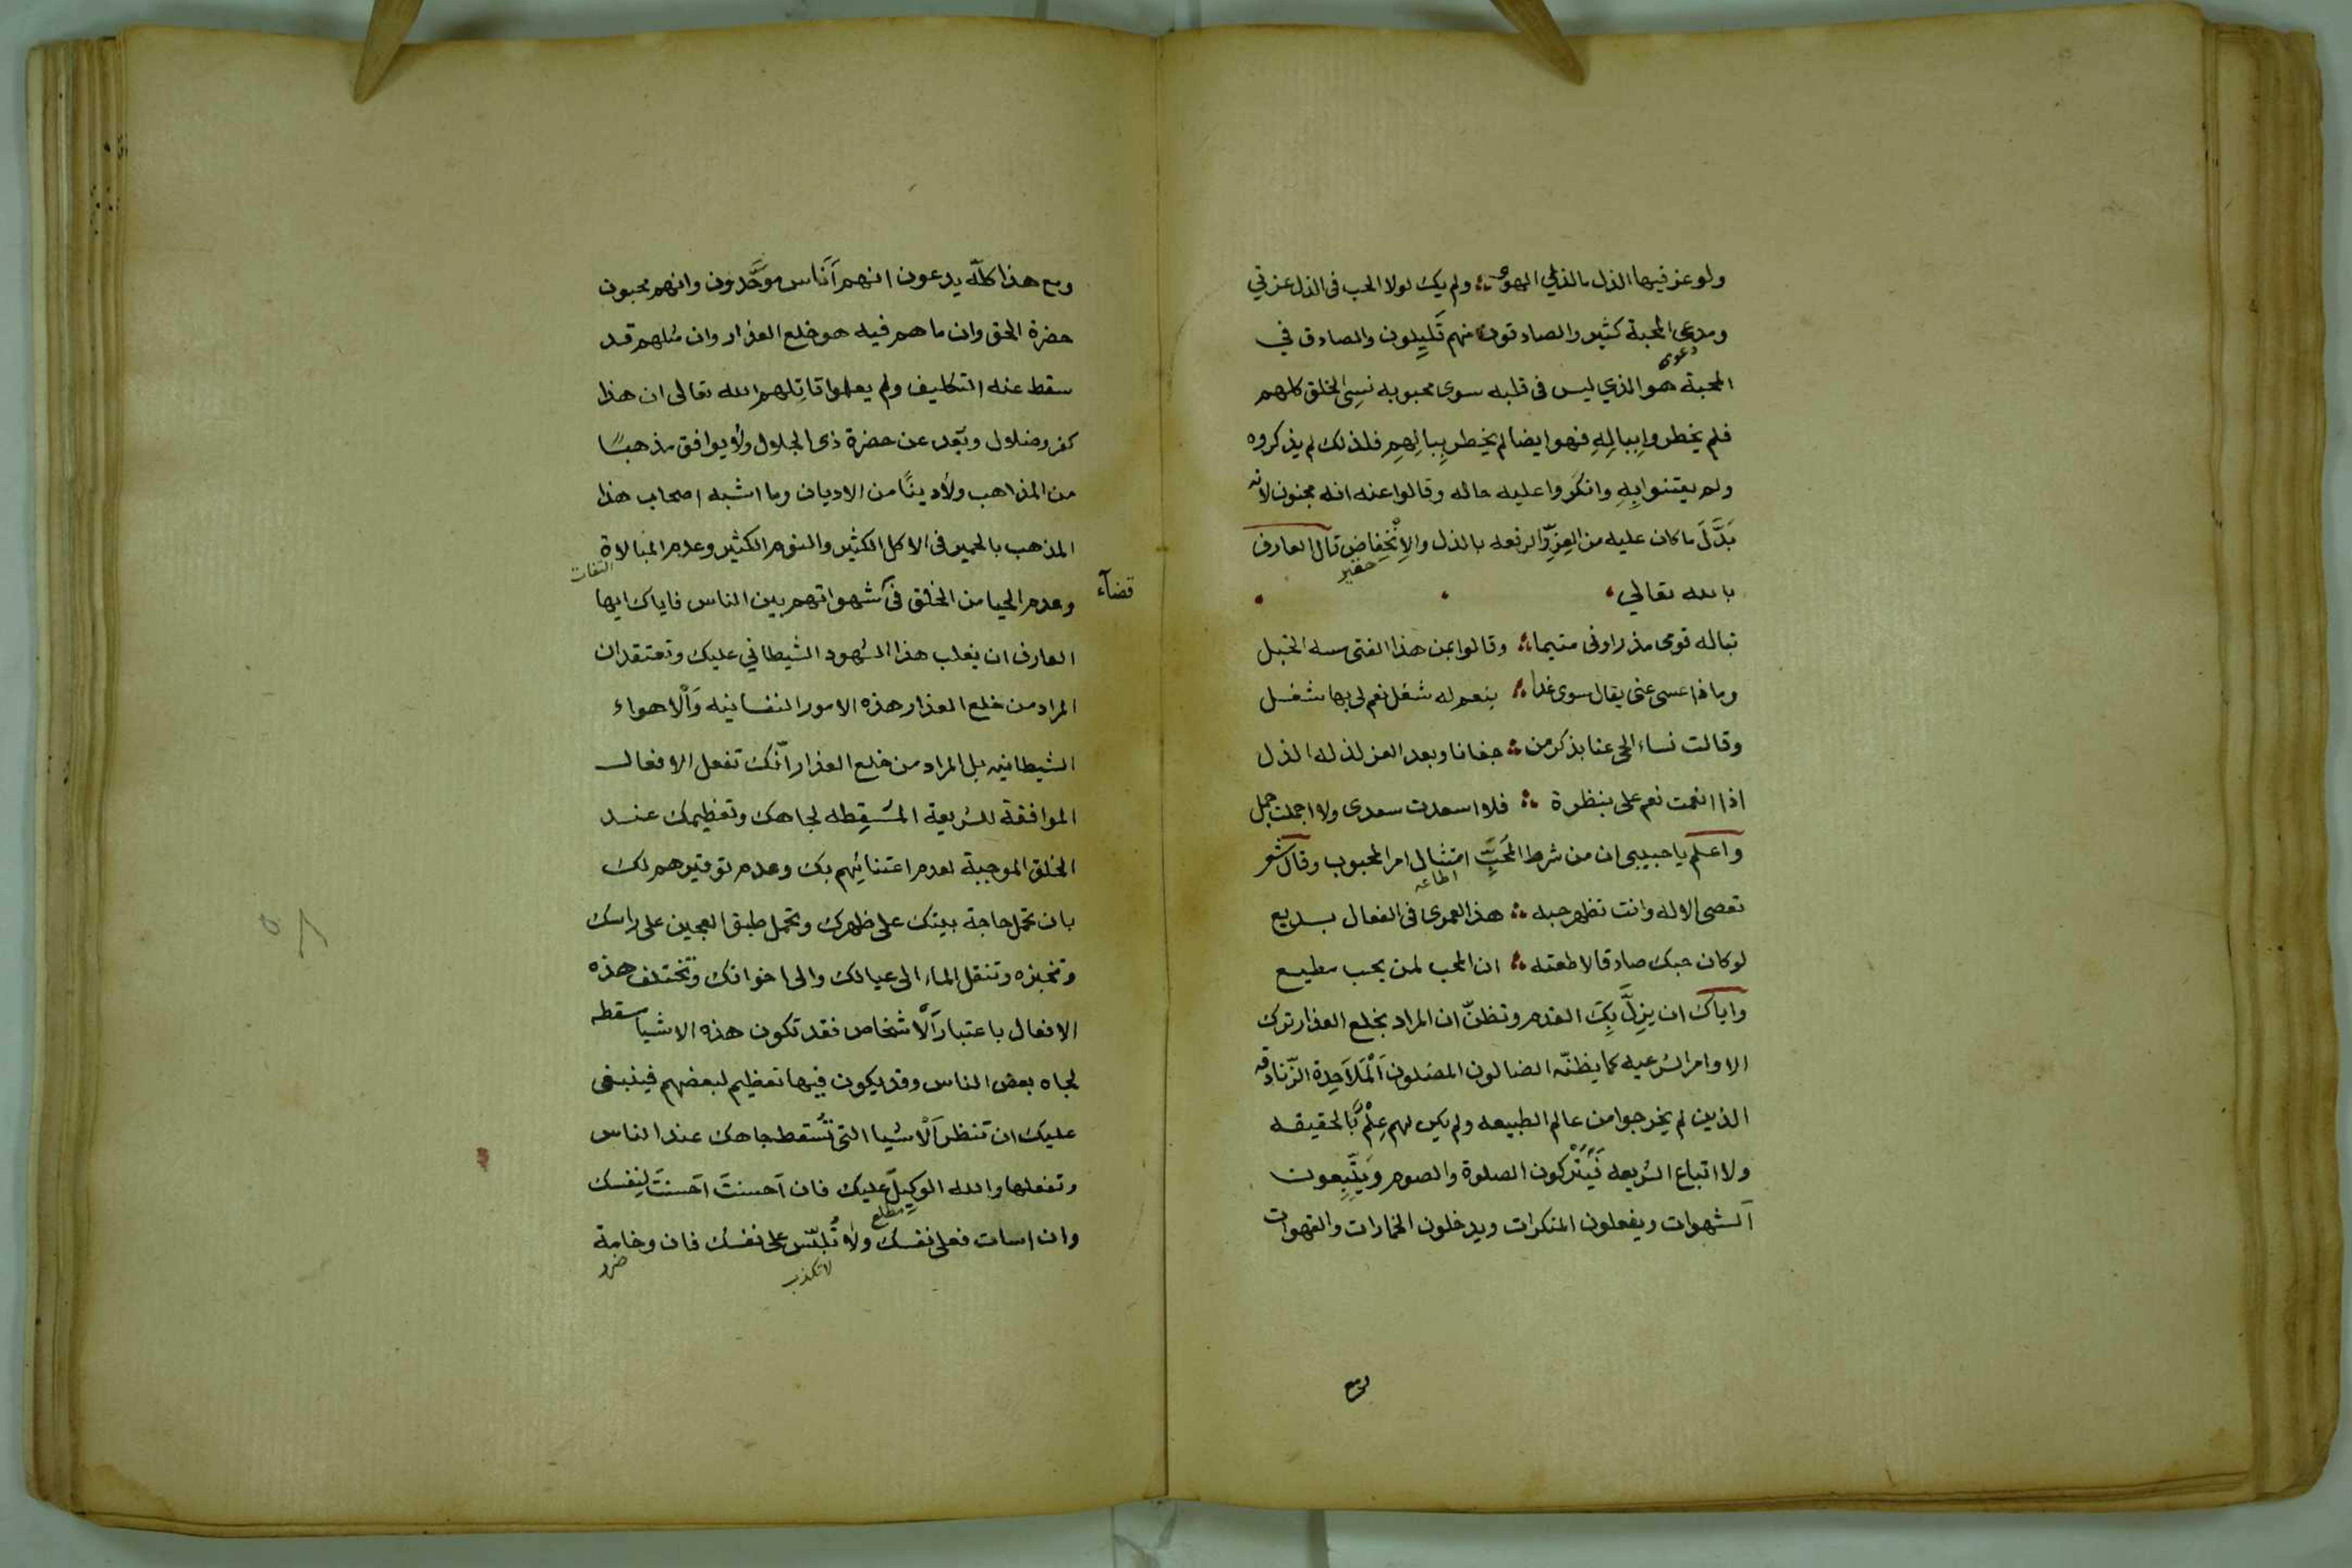 ولو عز فيها الذل ما لذ لي الهوى ولم يك لولا الحب في الذل عزتي
ومدعى المحبة كثير والصادقون منهم قليلون والصادق في
دعوى
المحبة هو الذي ليس في قلبه سوى محبوبه نسي الخلق كلهم
فلم يخطروا بِبالِهِ فهو ايضا لم يخطر بِبالِهِم فلذلك لم يذكروه
ولم يعتنوا بِهِ وانكروا عليه حاله وقالوا عنه انه مجنون لانه
بَدَّلَ ما كان عليه من العِزِّ والرفعه بالذل والاِنْخِفاضِ قال العارف
حقير
بالله تعالي
تباله قومى مذ راوني متيما وقالوا بمن هذا الفتى مسه الخبل
وماذا عسى عنى يقال سوى غدا بنعم له شغل نعم لى بها شغل
وقالت نساء الحى عنا بذكر من جفانا وبعد العز لذ له الذل
اذا انعمت نعم على بنظرة فلا اسعدت سعدى ولا اجملت جمل
واعلم يا حبيبى ان من شرط المُحَبَّةِ امتثال امر المحبوب وقال شعر
اطاعه
تعصى الاله وانت تظهر حبه هذا لعمرى فى الفعال بديع
لو كان حبك صادقا لاطعته ان المحب لمن يحب مطيع
واياك ان يزِلَّ بِكَ القدم وتظنّ ان المراد بخلع العذار ترك
الاوامر الشرعيه كما يظنّه الضالون المضلون اَلْمَلاَحِدة الزّنادقه
الذين لم يخرجوا من عالم الطبيعه ولم يكن لهم عِلْمٌ بالحقيقه
ولا اتباع الشريعه فَيَتْركون الصلوة والصوم وَيَتَّبِعون
الشهوات ويفعلون المنكرات ويدخلون الخمارات والقهوات
ومع
ومع هذا كلّه يدعون انهم اُناس موَحَّدون وانهم محبون
حضرة الحق وان ما هم فيه هو خلع العذار وان مثلهم قد
سقط عنه التكليف ولم يعلموا قاتلهم الله تعالى ان هذا
كفر وضلال وبُعد عن حضرة ذى الجلال ولا يوافق مذهبًا
من المذاهب ولا دينًا من الاديان وما اشبه اصحاب هذا
المذهب بالحمير فى الاكل الكثير والنوم الكثير وعدم المبالاة
التفات
وعدم الحيا من الخلق فى شهواتهم بين الناس فاياك ايها
قضآء
العارف ان يغلب هذا الشهود الشيطاني عليك وتعتقد ان
المراد من خلع العذار هذه الامور النفسانيه وَاْلاهواء
الشيطانيه بل المراد من خلع العذار انّك تفعل الافعال
الموافقة للشريعة المُسْقِطه لجاهك وتعظيمك عند
الخلق الموجبة لعدم اعتنائِهم بك وعدم توقيرهم لك
بان تحمل حاجة بيتك على ظهرك وتحمل طبق العجين على راسك
وتخبزه وتنقل الماء الى عيالك والى اخوانك وتختلف هذه
الافعال باعتبار اْلاشخاص فقد تكون هذه الاشيا سقطه
لجاه بعض الناس وقد يكون فيها تعظيم لبعضهم فينبغى
عليك ان تنظر اْلاشيا التى تُسقط جاهك عند الناس
وتفعلها والله الوكيلُ عليك فان اَحسنتَ اَحسنتَ لِنفسك
مطلع
وان اسات فعلى نفسك ولا تُلَبّس على نفسك فان وخامة
لا تكذب
ضرر